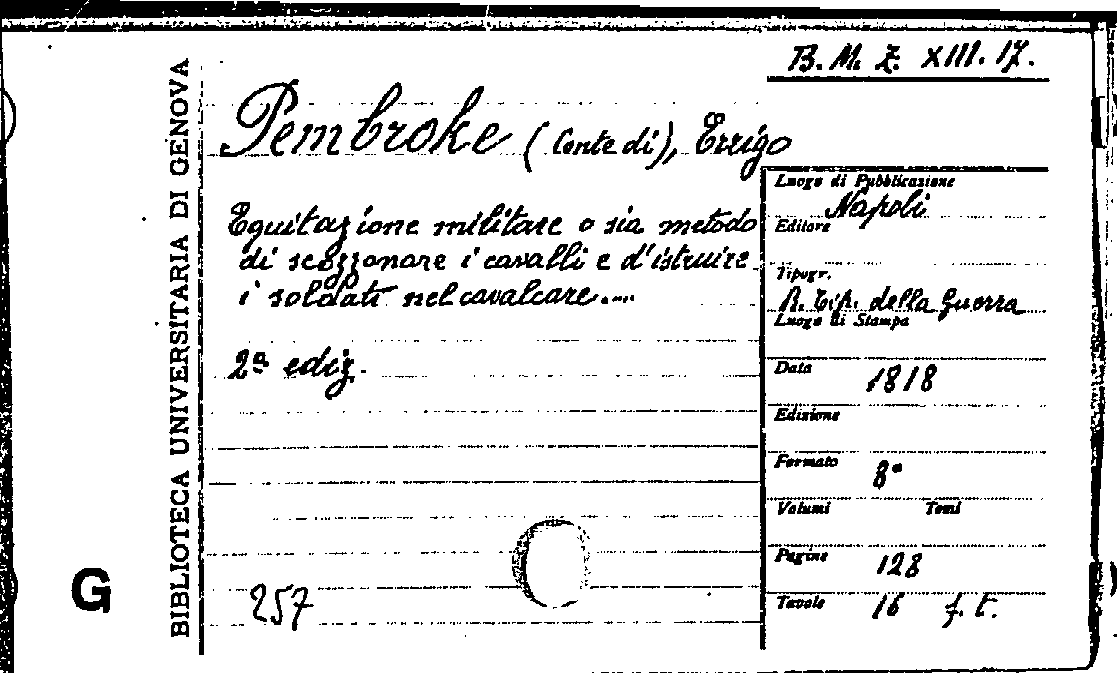 B. M. Z. XIII. 17.
Pembroke (Conte di), Errigo
Equitazione militare o sia metodo
di scozzonare i cavalli e d'istruire
i soldati nel cavalcare....
2ª ediz.
257
Luogo di Pubblicazione
Napoli
Editore
Tipogr.
R. Tip. della Guerra
Luogo di Stampa
Data 1818
Edizione
Formato 8°
Volumi Tomi
Pagine 128
Tavole 16 f. t.
BIBLIOTECA UNIVERSITARIA DI GENOVA
G